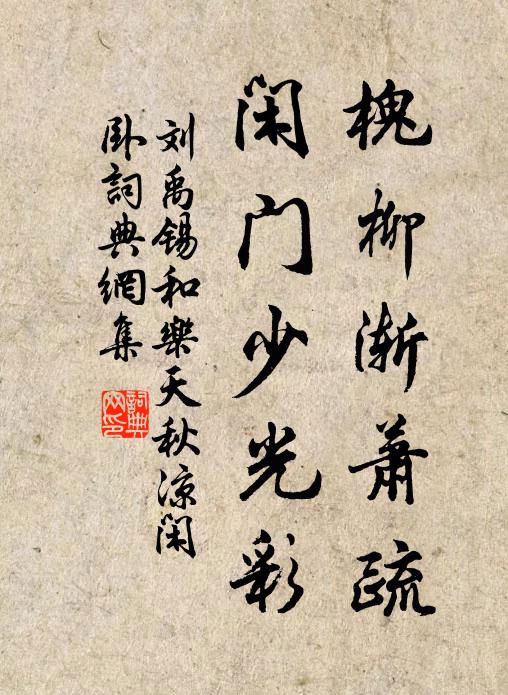 槐柳渐萧疏
闲门少光彩
刘禹锡和樂天秋凉闲
卧詞典網集
詞典
网印